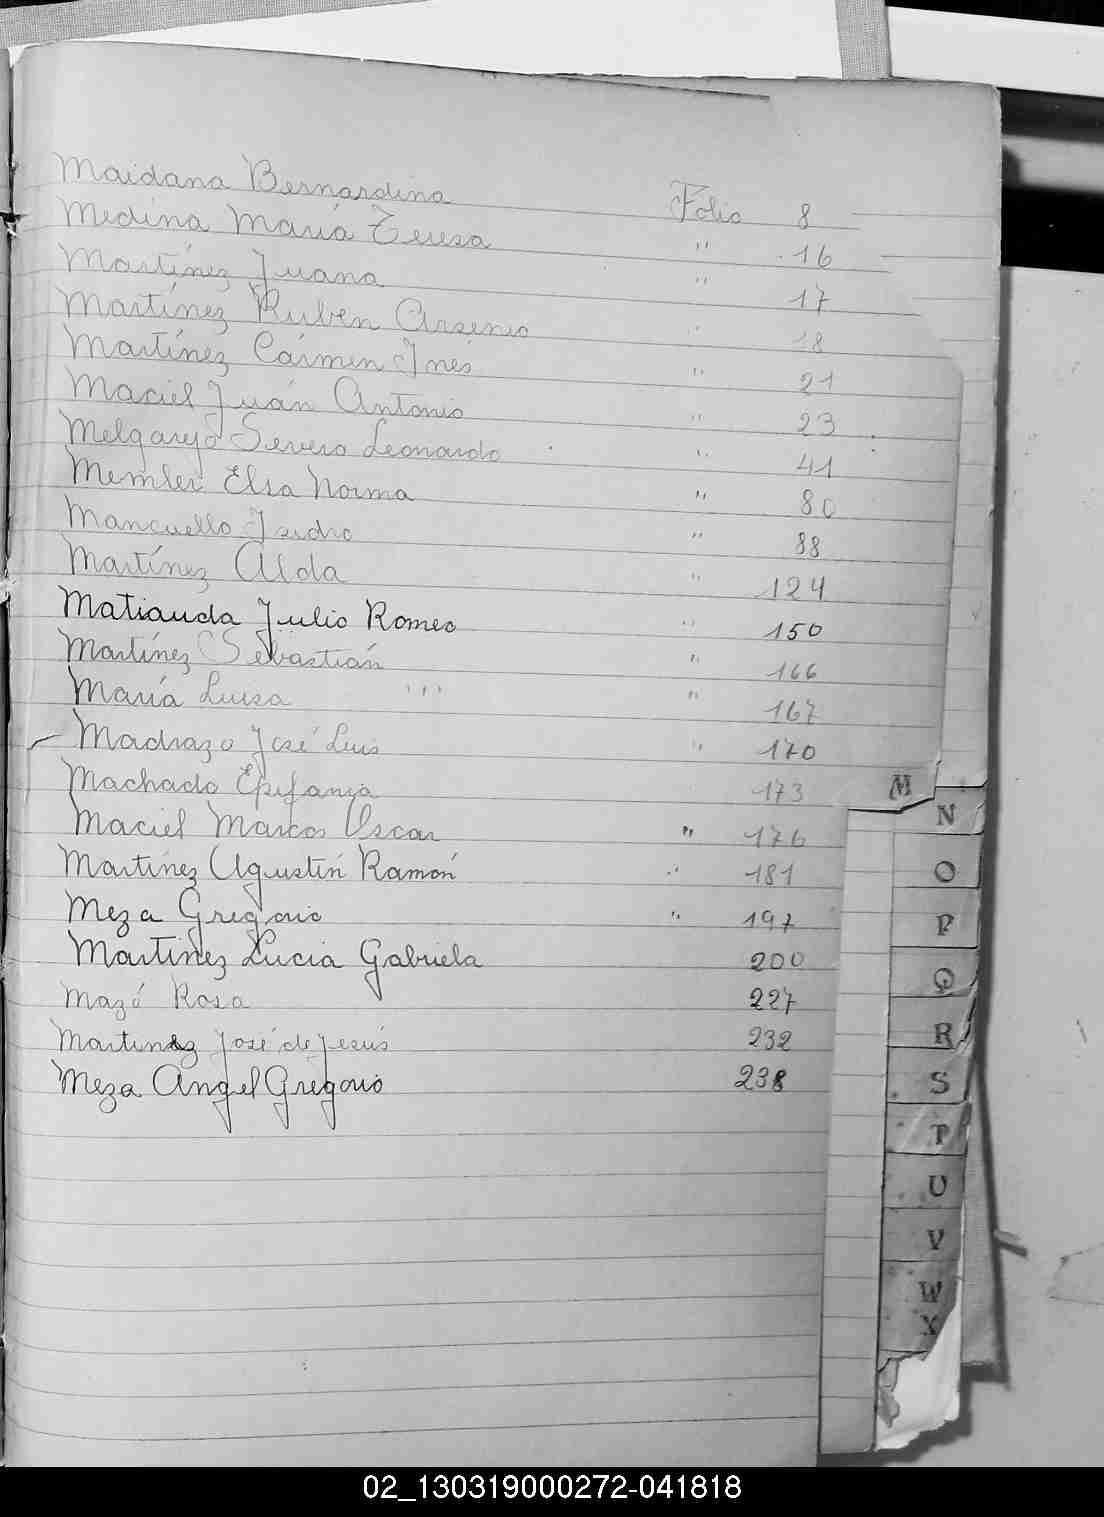 Maidana Bernardina Folio 8
Medina María Teresa " 16
Martínez Juana " 17
Martínez Ruben Arsenio " 18
Martínez Cármen Inés " 21
Maciel Juán Antonio " 23
Melgarejo Severo Leonardo " 41
Memler Elsa Norma " 80
Mancuello Isidro " 88
Martínez Alda " 124
Matiauda Julio Romeo " 150
Martínez Sebastián " 166
María Luisa " " 167
Madrazo José Luis " 170
Machado Epifania 173
Maciel Marcos Oscar " 176
Martínez Agustín Ramón " 181
Meza Gregorio " 197
Martínez Lucia Gabriela 200
Mazó Rosa 227
Martinez José de Jesús 232
Meza Angel Gregorio 238
M
N
O
P
Q
R
S
T
U
V
W
X
02_130319000272-041818